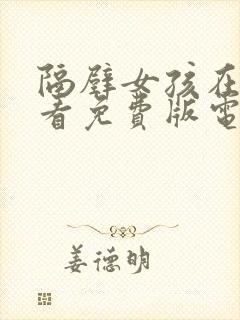 隔壁女孩在
看免费版電
姜德明